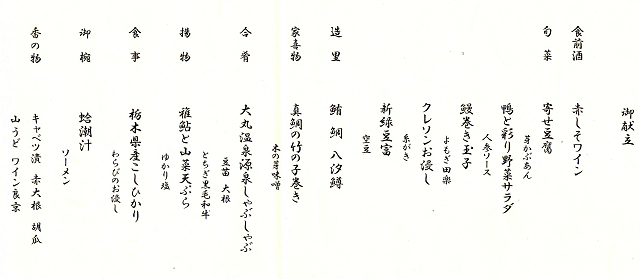 御献立
食前酒 赤しそワイン
旬菜 寄せ豆腐
芽かぶあん
鴨と彩り野菜サラダ
人参ソース
鰻巻き玉子
よもぎ田楽
クレソンお浸し
糸がき
新緑豆富
空豆
造里 鮪 鯛 八汐鱒
家喜物 真鯛の竹の子巻き
木の芽味噌
合肴 大丸温泉源泉しゃぶしゃぶ
豆苗 大根
とちぎ黒毛和牛
揚物 稚鮎と山菜天ぷら
ゆかり塩
食事 栃木県産こしひかり
わらびのお浸し
御椀 蛤潮汁
ソーメン
香の物 キャベツ漬 赤大根 胡瓜
山うど ワインらっ京